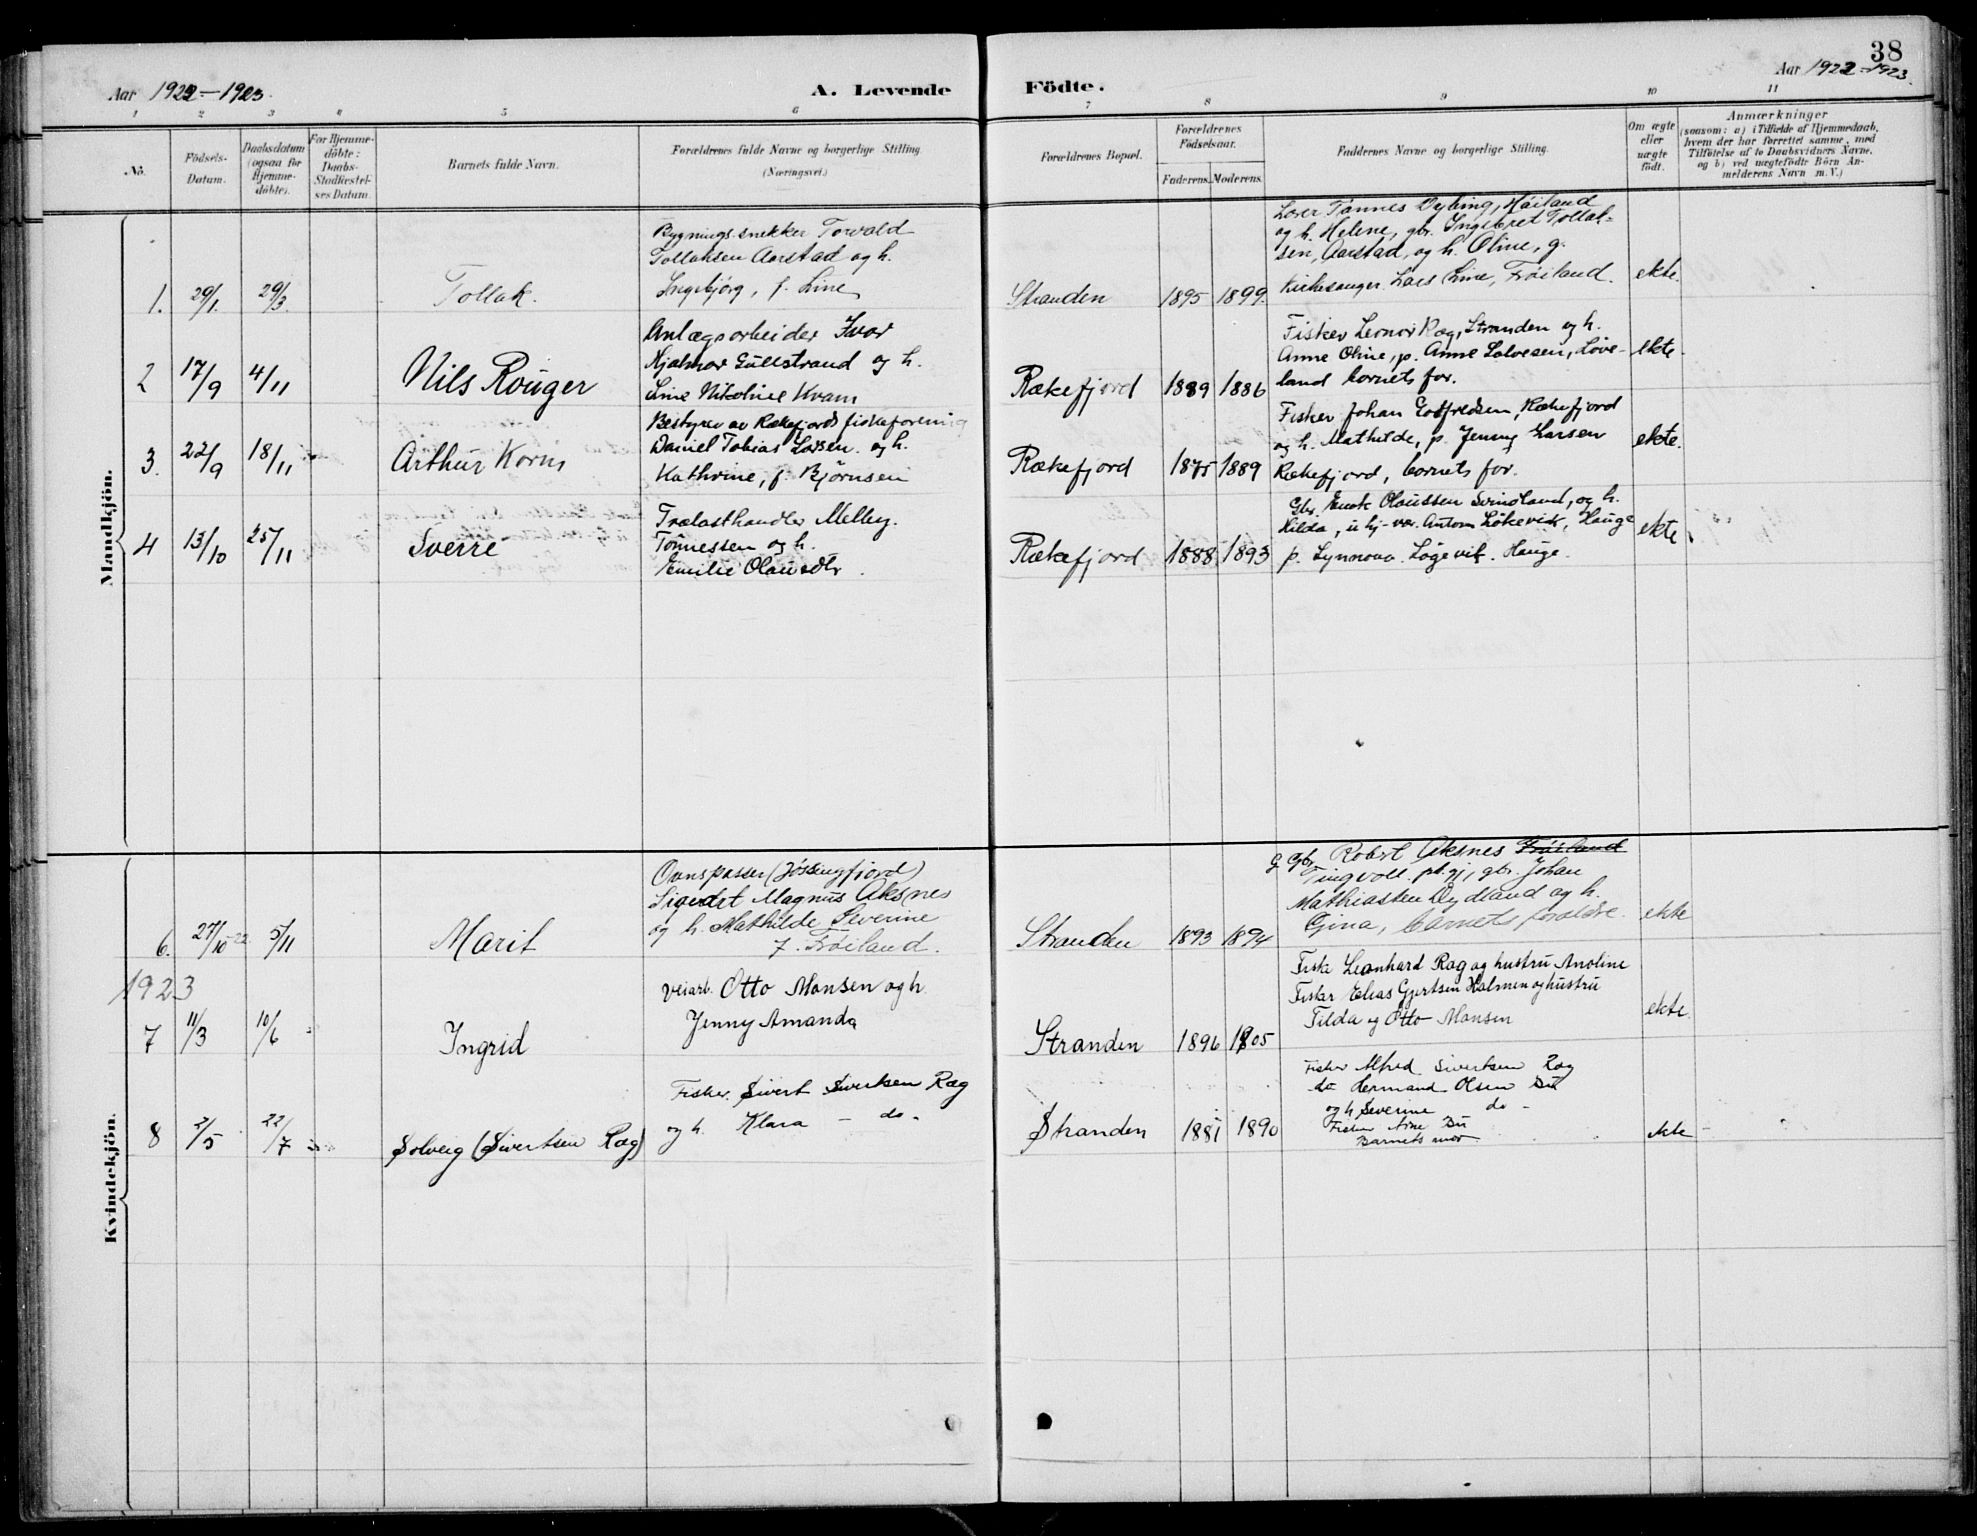 38
Aar 1922-1923.
A. Levende
Födte.
Aar 1922-1923.
1 2 3 4 5 6 7 8 9 10 11
No.
Födsels-Datum.
Daabsdatum (ogsaa for Hjemme-döbte).
For Hjemme-döbte: Daabs-Stadfæstel-ses Datum.
Barnets fulde Navn.
Forældrenes fulde Navne og borgerlige Stilling.
(Næringsvei.)
Forældrenes Bopæl.
Forældrenes Födselsaar.
Faderens. Moderens.
Faddernes Navne og borgerlige Stilling.
Om ægte eller uægte födt.
Anmærkninger
(saasom: a) i Tilfælde af Hjemmedaab,
hvem der har forrettet samme, med
Tilföielse af to Daabsvidners Navne,
og b) ved uægtefödte Börn An-
melderens Navn m. V.)
Mandkjön.
1. 29/1. 29/3. Tollak.
Bygningssnekker Torvald
Tollaksen Aarstad og h.
Ingebjörg, f. Line
Stranden 1895 1899.
og h. Helene, gbr. Ingebret Tollak-
sen, Aarstad, og h. Oline, g.
Kirkesanger Lars Line, Fröiland.
ekte.
2 17/9 4/11 Nils Rouger
Anlægsarbeider Ivar
Hjalmar Gullstrand og h.
Line Nikoline Kvam
Rækefjord 1889 1886
Fisker Leonor Ræg, Stranden og h.
Anne Oline, p. Anne Salvesen, Love-
land barnets for.
ekte
3. 22/9 18/11 Arthur Korn
Bestyrer av Rækefjords fiskeforening
Daniel Tobias Larsen og h.
Kathrine, f. Bjørnsen
Rækefjord 1875 1889
Fisker Johan Godfredsen, Rækefjord
og h. Mathilde, p. Jenny Larsen
Rækefjord, barnets for.
ekte.
4 13/10 25/11 Sverre
Trælasthandler Melley
Tönnessen og h.
Emilie Olausdtr.
Rækefjord 1888 1893
Gbr. Enok Olaussen Svindland, og h.
Hilda, Anton Løkevik, Hauge
p. Synnova Løgevik. Hauge.
ekte
Kvindekjön.
6. 27/10-22 5/11 Marit
Ovnspasser (Jössingfjord)
Sigurdt Magnus Aksnes
og h. Mathilde Severine
f. Fröiland.
Stranden 1893 1894
gbr. Robert Aksnes Fröiland
Tingvoll. gbr. Johan
Mathiassen Dydland og h.
Gina, barnets foreldre.
ekte
1923
7 11/3 10/6 Ingrid
veiarb. Otto Monsen og h.
Jenny Amanda
Stranden 1896 1905
Fisker Leonhard Ræg og hustru Anoline
Fisker Elias Gjertsen Halmen og hustru
Tilda og Otto Monsen
ekte
8 2/5 22/7 Solveig (Sivertsen Ræg)
Fisker Sivert Sivertsen Ræg
og h. Klara - do -
Stranden 1881 1890
Fisker Alfred Sivertsen Ræg
do Hermand Olsen Bu
og h Severine do -
Fisker Aine Bu
Barnets mor
ekte